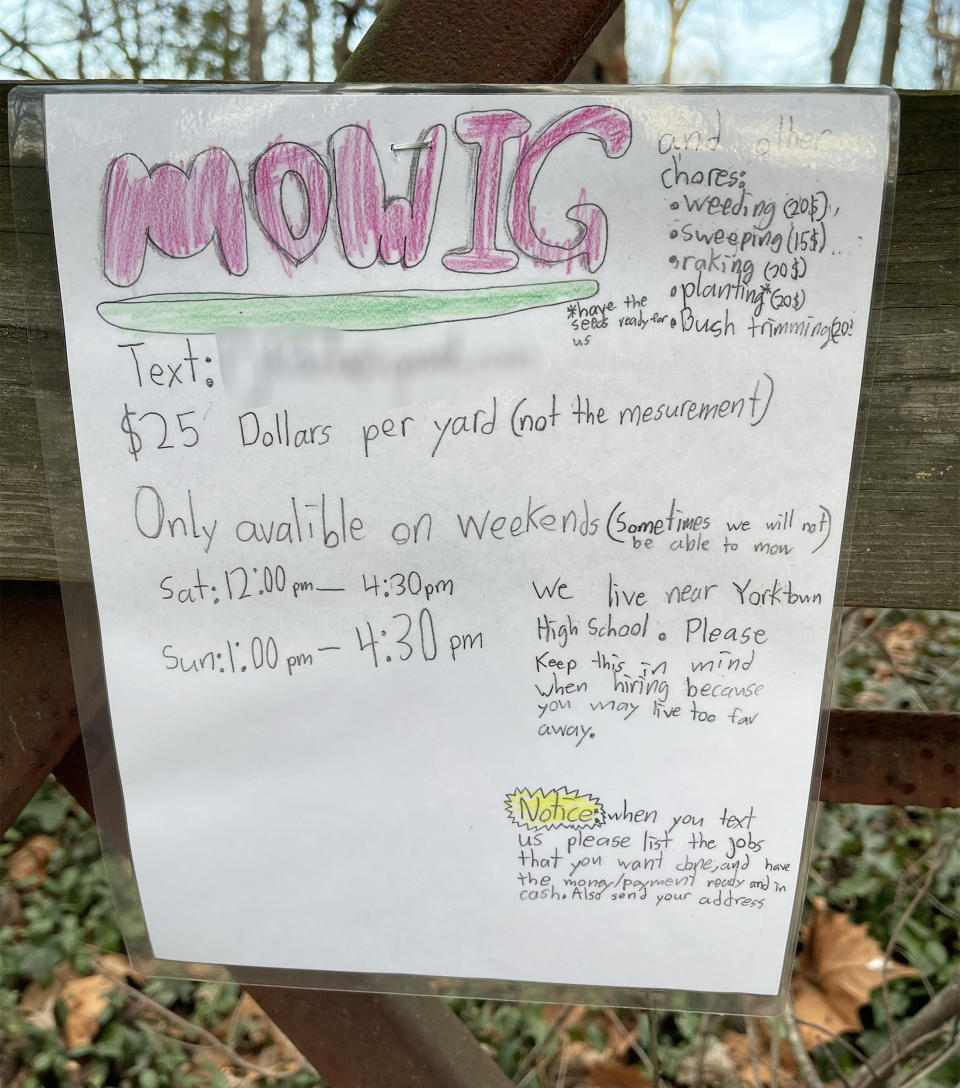 MOWIG
and other
chores:
• weeding (20$)
• sweeping (15$)
• raking (20$)
• planting* (20$)
*have the
seeds ready for
us
• Bush trimming (20$
Text:
$25 Dollars per yard (not the mesurement)
Only avalible on weekends (Sometimes we will not)
be able to mow
Sat: 12:00 pm — 4:30pm
Sun: 1:00 pm — 4:30 pm
We live near Yorktown
High School. Please
Keep this in mind
when hiring because
you may live too far
away.
Notice: when you text
us please list the jobs
that you want done, and have
the money/payment ready and in
cash. Also send your address